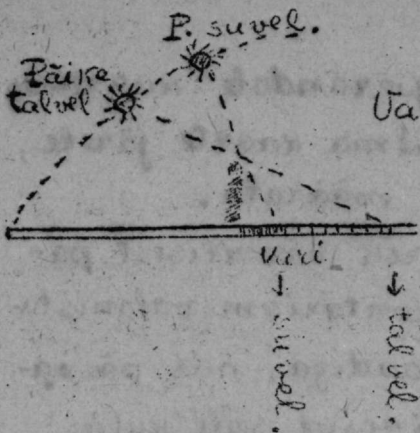 P. suvel.
Päike
talvel
Va
Vari
suvel.
talvel.